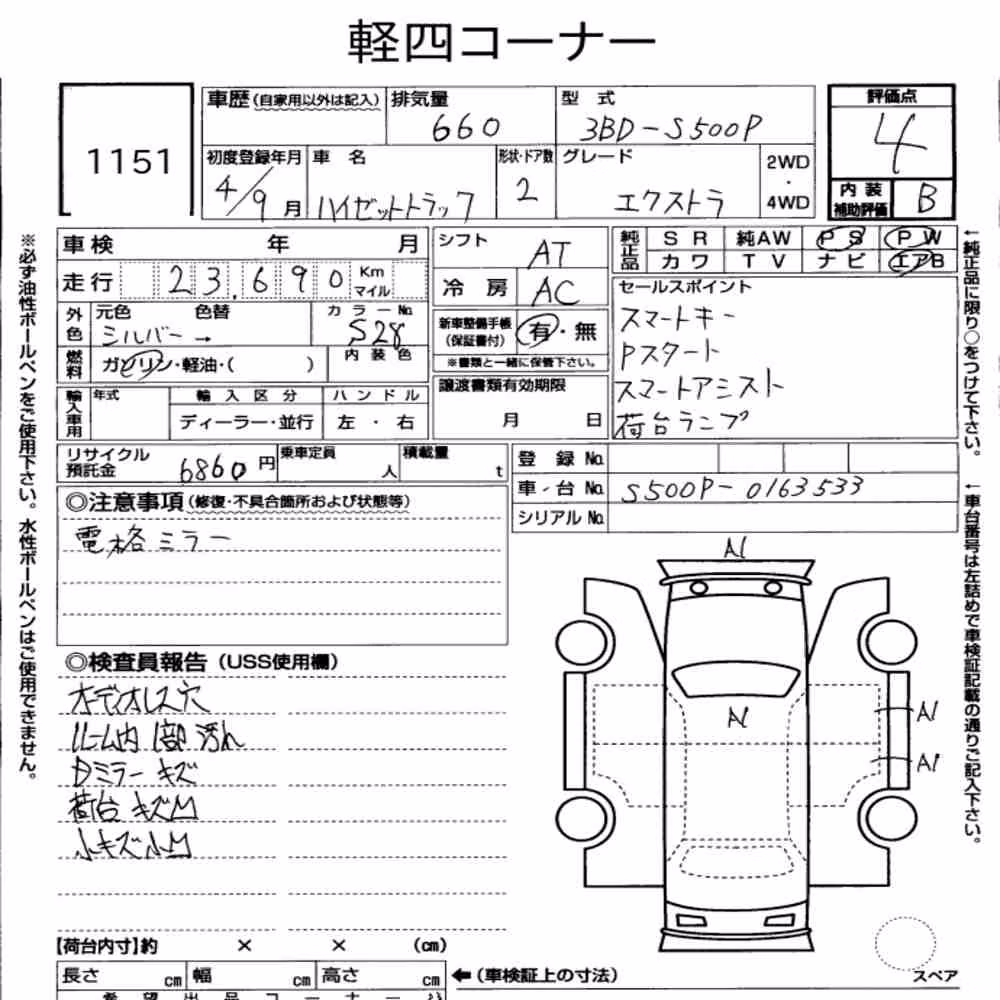 軽四コーナー
1151
車歴(自家用以外は記入) 排気量 型 式 評価点
660 3BD-S500P 4
初度登録年月 車 名 形状・ドア数 グレード 2WD・4WD
4/9月 ハイゼットトラック 2 エクストラ
内装補助評価 B
車検 年 月 シフト AT
純正品 SR 純AW PS PW
カワ TV ナビ エアB
走行 23,690 Km マイル 冷 房 AC
セールスポイント
スマートキー
Pスタート
スマートアシスト
荷台ランプ
外色 元色 色替 カラーNo.
シルバー → S28
新車整備手帳(保証書付) 有・無
※書類と一緒に保管下さい。
燃料 ガソリン・軽油・( ) 内装色
譲渡書類有効期限
月 日
輸入車用 年式 輸入区分 ハンドル
ディーラー・並行 左・右
リサイクル預託金 6860円 乗車定員 人 積載量 t
登 録 No.
車 台 No. S500P-0163533
シリアル No.
◎注意事項(修復・不具合箇所および状態等)
電格ミラー
◎検査員報告(USS使用欄)
オーディオレス穴
ルーム内 1部 汚れ
Dミラー キズ
荷台 キズ凹
小キズ小凹
A1
A1
A1
A1
スペア
【荷台内寸】約 × × (cm)
長さ cm 幅 cm 高さ cm ←(車検証上の寸法)
希望出品コーナー
※必ず油性ボールペンをご使用下さい。水性ボールペンはご使用できません。
←純正品に限り○をつけて下さい。
←車台番号は左詰めで車検証記載の通りご記入下さい。